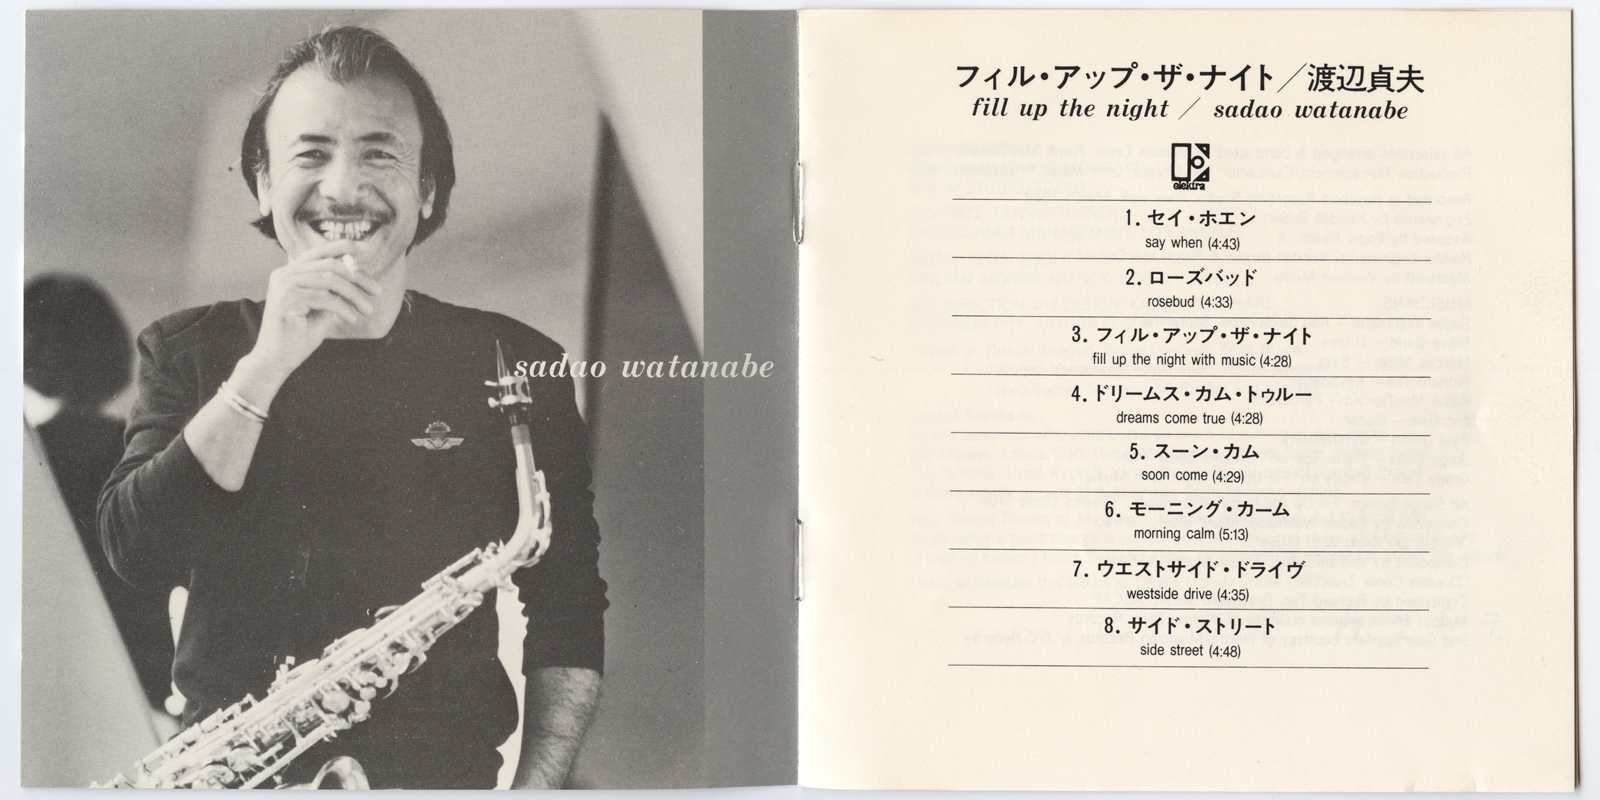 sadao watanabe
フィル・アップ・ザ・ナイト／渡辺貞夫
fill up the night ／ sadao watanabe
elektra
1. セイ・ホエン
say when (4:43)
2. ローズバッド
rosebud (4:33)
3. フィル・アップ・ザ・ナイト
fill up the night with music (4:28)
4. ドリームス・カム・トゥルー
dreams come true (4:28)
5. スーン・カム
soon come (4:29)
6. モーニング・カーム
morning calm (5:13)
7. ウエストサイド・ドライヴ
westside drive (4:35)
8. サイド・ストリート
side street (4:48)